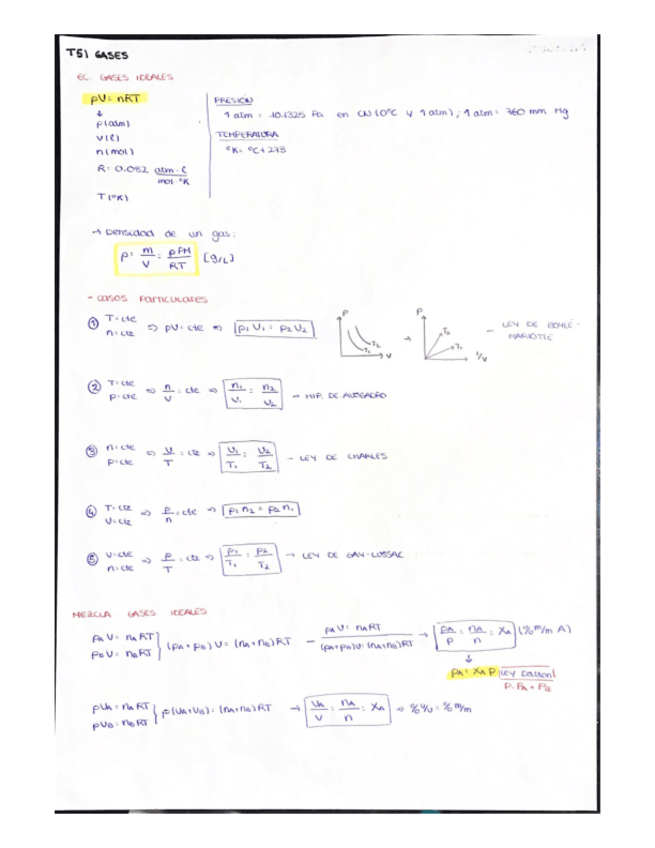 T5) GASES
EC. GASES IDEALES
pV = nRT
p(atm)
V(l)
n(mol)
R = 0.082 atm·l / mol·ºK
T(ºK)
PRESIÓN
1 atm = 101325 Pa en CN (0ºC y 1 atm); 1 atm = 760 mm Hg
TEMPERATURA
ºK = ºC + 273
→ Densidad de un gas:
ρ = m/V = pPM/RT [g/L]
- CASOS PARTICULARES
① T = cte n = cte ⇒ pV = cte ⇒ p₁V₁ = p₂V₂
P T₂ T₁ V → P T₂ T₁ 1/V
- LEY DE BOYLE-MARIOTTE
② T = cte p = cte ⇒ n/V = cte ⇒ n₁/V₁ = n₂/V₂ → HIP. DE AVOGADRO
③ n = cte p = cte ⇒ V/T = cte ⇒ V₁/T₁ = V₂/T₂ - LEY DE CHARLES
④ T = cte V = cte ⇒ p/n = cte ⇒ p₁n₂ = p₂n₁
⑤ V = cte n = cte ⇒ p/T = cte ⇒ p₁/T₁ = p₂/T₂ → LEY DE GAY-LUSSAC
MEZCLA GASES IDEALES
pAV = nART
pBV = nBRT } (pA + pB)V = (nA + nB)RT - pAV = nART / (pA + pB)V = (nA + nB)RT → pA/p = nA/n = XA (% m/m A)
↓
pA = XA P LEY Dalton
P = PA + PB
pVA = nART
pVB = nBRT } p(VA + VB) = (nA + nB)RT → VA/V = nA/n = XA ⇒ % V/V = % m/m